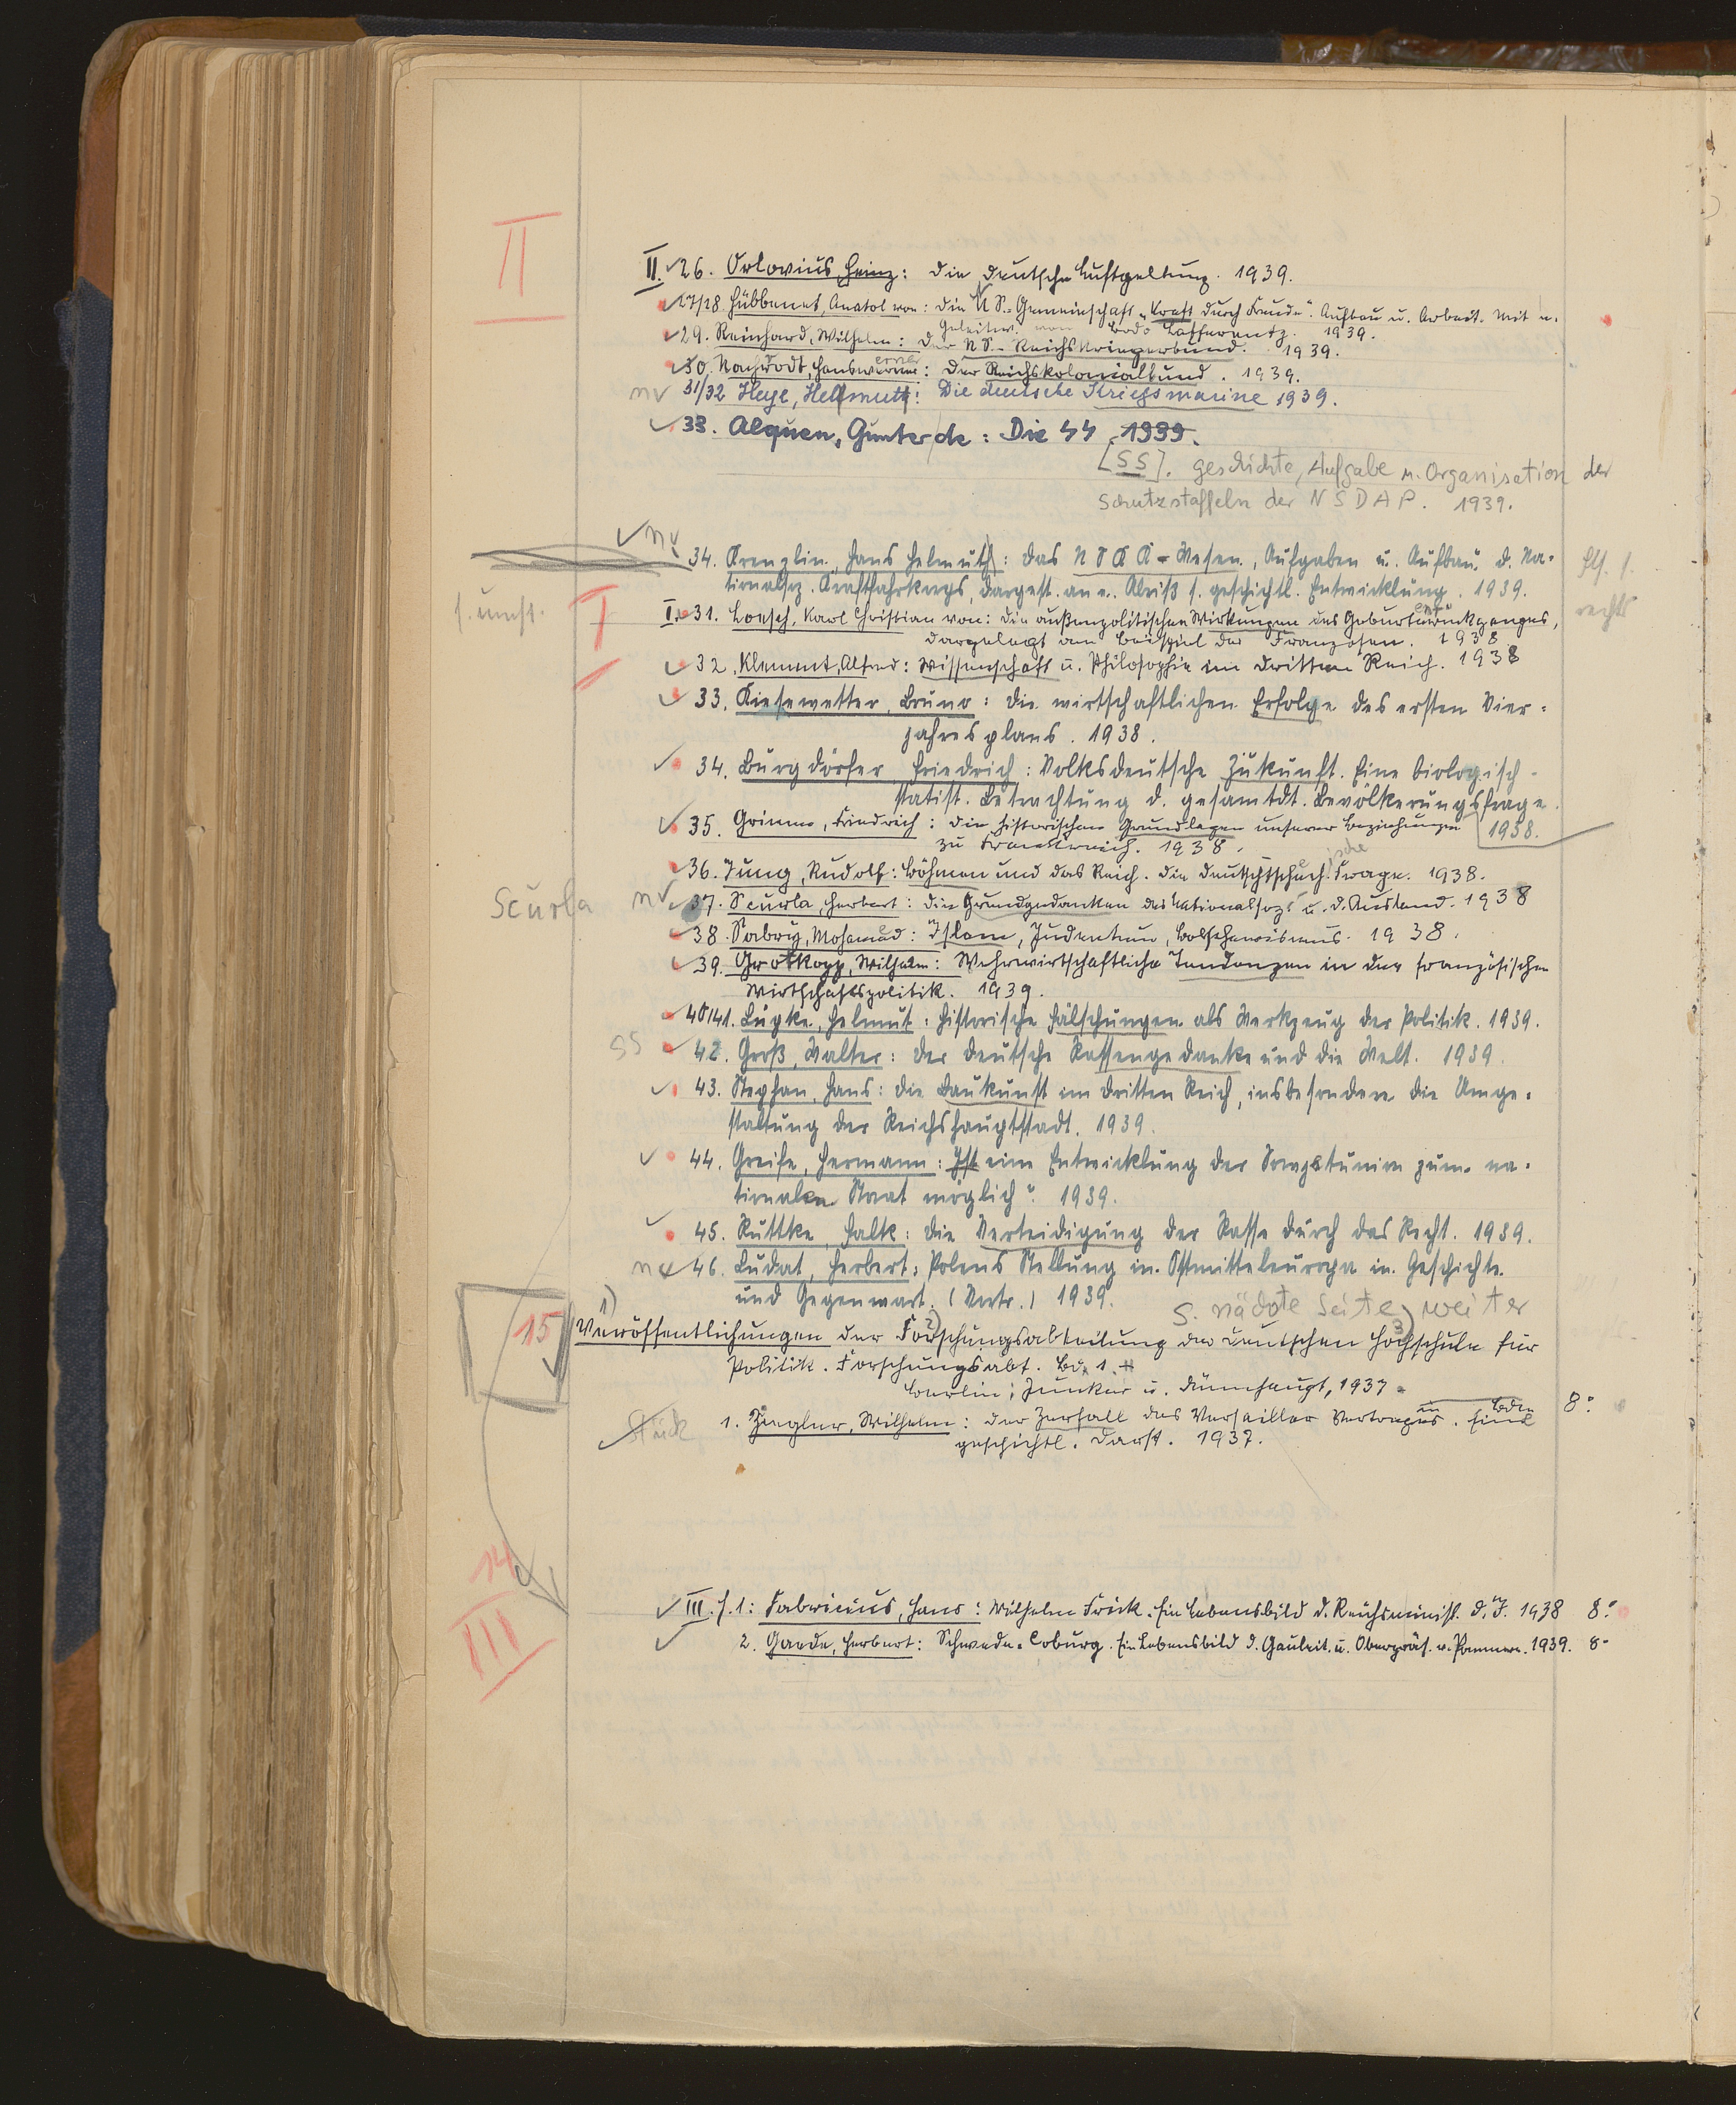 II
II. 26. Orlovius, Heinz: Die Deutsche Luftgeltung. 1939.
27/28 Hübbenet, Anatol von: Die NS.-Gemeinschaft "Kraft durch Freude". Aufbau u. Arbeit. Mit e.
Geleitw. von Bodo Lafferentz. 1939.
29. Reinhard, Wilhelm: Der NS.-Reichskriegerbund. 1939.
30. Nachrodt, Hanswerner: Der Reichskolonialbund. 1939.
nv 31/32 Heye, Hellmuth: Die deutsche Kriegsmarine 1939.
33. Alquen, Gunter de: Die SS 1939.
[SS]. Geschichte, Aufgabe u. Organisation der
Schutzstaffeln der NSDAP. 1939.
nv
34. Krenzlin, Hans Helmuth: Das NSKK - Wesen, Aufgaben u. Aufbau d. Na-
tionalsoz. Kraftfahrkorps, dargest. an e. Abriß s. geschichtl. Entwicklung. 1939.
rechts
I
I. 31. Loesch, Karl Christian von: Die außenpolitischen Wirkungen des Geburtenrückganges,
dargelegt am Beispiel der Franzosen. 1938
32. Klemmt, Alfred: Wissenschaft u. Philosophie im Dritten Reich. 1938
33. Kiesewetter, Bruno: Die wirtschaftlichen Erfolge des ersten Vier-
jahresplans. 1938.
34. Burgdörfer, Friedrich: Volksdeutsche Zukunft. Eine biologisch-
statist. Betrachtung d. gesamtdt. Bevölkerungsfrage.
1938.
35. Grimm, Friedrich: Die historischen Grundlagen unserer Beziehungen
zu Frankreich. 1938.
36. Jung, Rudolf: Böhmen und das Reich. Die deutschtschechische Frage. 1938.
Scurla nv 37. Scurla, Herbert: Die Grundgedanken des Nationalsoz. u. d. Ausland. 1938
38. Sabry, Mohamed: Islam, Judentum, Bolschewismus. 1938.
39. Grotkopp, Wilhelm: Wehrwirtschaftliche Tendenzen in der französischen
Wirtschaftspolitik. 1939.
40/41. Lüpke, Helmut: Historische Fälschungen als Werkzeug der Politik. 1939.
SS 42. Groß, Walter: Der deutsche Rassengedanke und die Welt. 1939.
43. Stephan, Hans: Die Baukunst im Dritten Reich, insbesondere die Umge-
staltung der Reichshauptstadt. 1939.
44. Greife, Hermann: Ist eine Entwicklung der Sowjetunion zum na-
tionalen Staat möglich? 1939.
45. Ruttke, Falk: Die Verteidigung der Rasse durch das Recht. 1939.
nv 46. Ludat, Herbert: Polens Stellung in Ostmitteleuropa in Geschichte
und Gegenwart. (Vortr.) 1939.
S. nächste Seite weiter
15 1) Veröffentlichungen der 2) Forschungsabteilung der Deutschen 3) Hochschule für
Politik. Forschungsabt. Bd. 1.
Berlin: Junker u. Dünnhaupt, 1937
in Bden 8°
Stück 1. Ziegler, Wilhelm: Der Zerfall des Versailler Vertrages. Eine
geschichtl. Darst. 1937.
14
III
III. H. 1: Fabricius, Hans: Wilhelm Frick. Ein Lebensbild d. Reichsminist. d. I. 1938 8°
2. Gaede, Herbert: Schwede-Coburg. Ein Lebensbild d. Gauleit. u. Oberpräs. v. Pommern. 1939. 8°